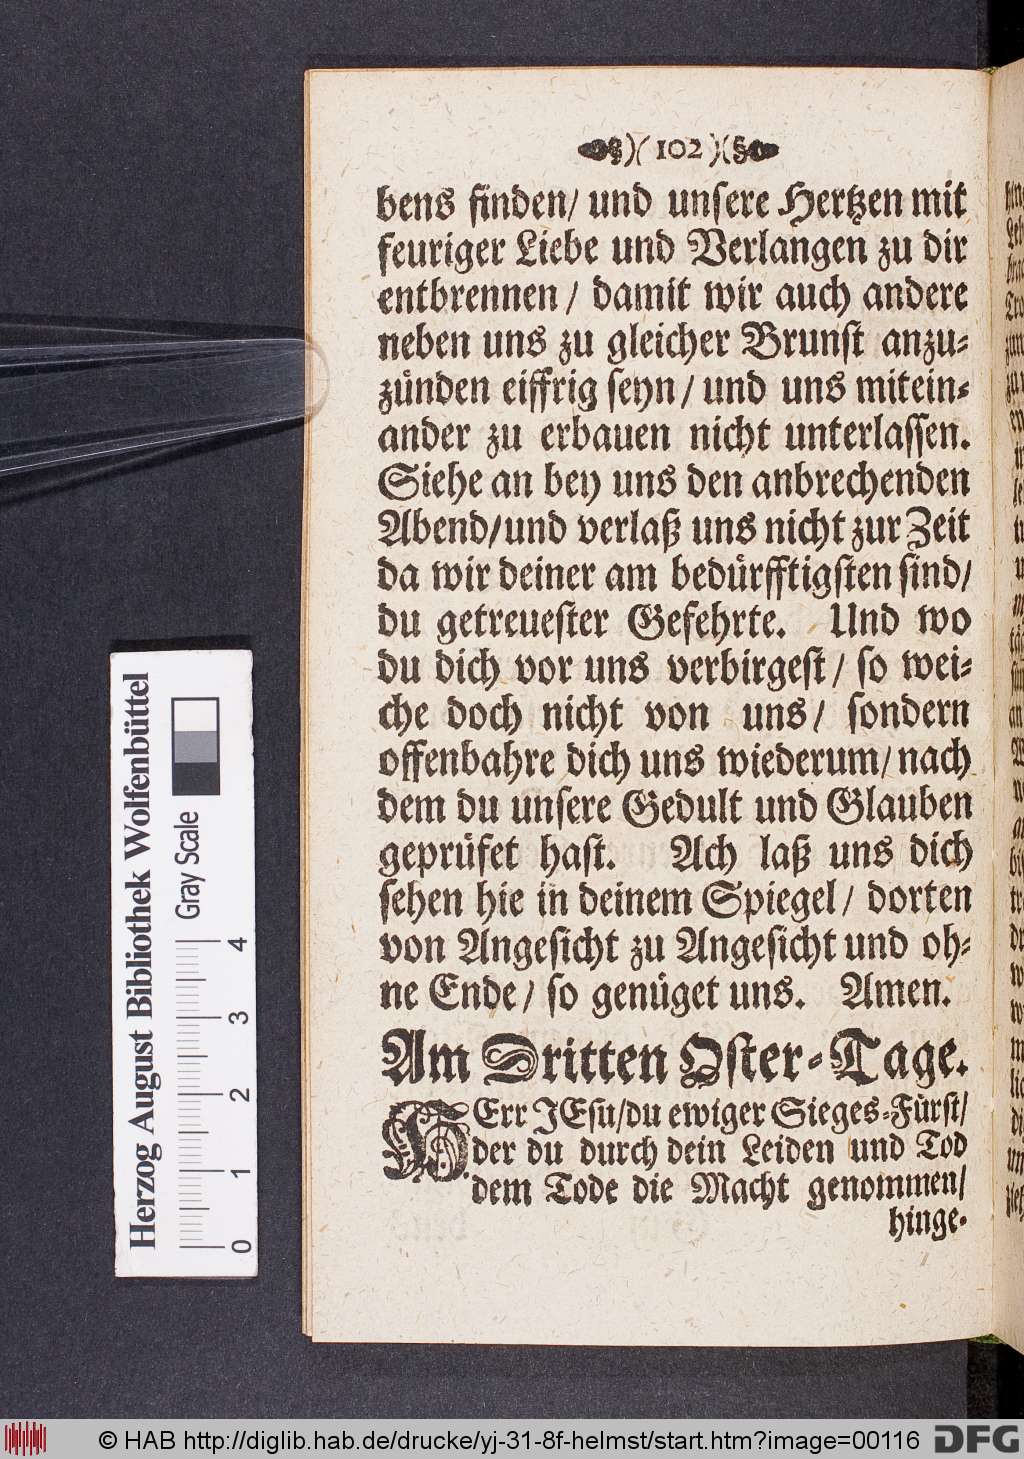 )( 102 )(
bens finden/ und unsere Hertzen mit
feuriger Liebe und Verlangen zu dir
entbrennen / damit wir auch andere
neben uns zu gleicher Brunst anzu-
zünden eiffrig seyn / und uns mitein-
ander zu erbauen nicht unterlassen.
Siehe an bey uns den anbrechenden
Abend/und verlaß uns nicht zur Zeit
da wir deiner am bedürfftigsten sind/
du getreuester Gefehrte. Und wo
du dich vor uns verbirgest / so wei-
che doch nicht von uns / sondern
offenbahre dich uns wiederum/ nach
dem du unsere Gedult und Glauben
geprüfet hast. Ach laß uns dich
sehen hie in deinem Spiegel / dorten
von Angesicht zu Angesicht und oh-
ne Ende / so genüget uns. Amen.
Am Dritten Oster-Tage.
HErr JEsu/du ewiger Sieges-Fürst/
der du durch dein Leiden und Tod
dem Tode die Macht genommen/
hinge-
Herzog August Bibliothek Wolfenbüttel
Gray Scale
0 1 2 3 4
© HAB http://diglib.hab.de/drucke/yj-31-8f-helmst/start.htm?image=00116
DFG